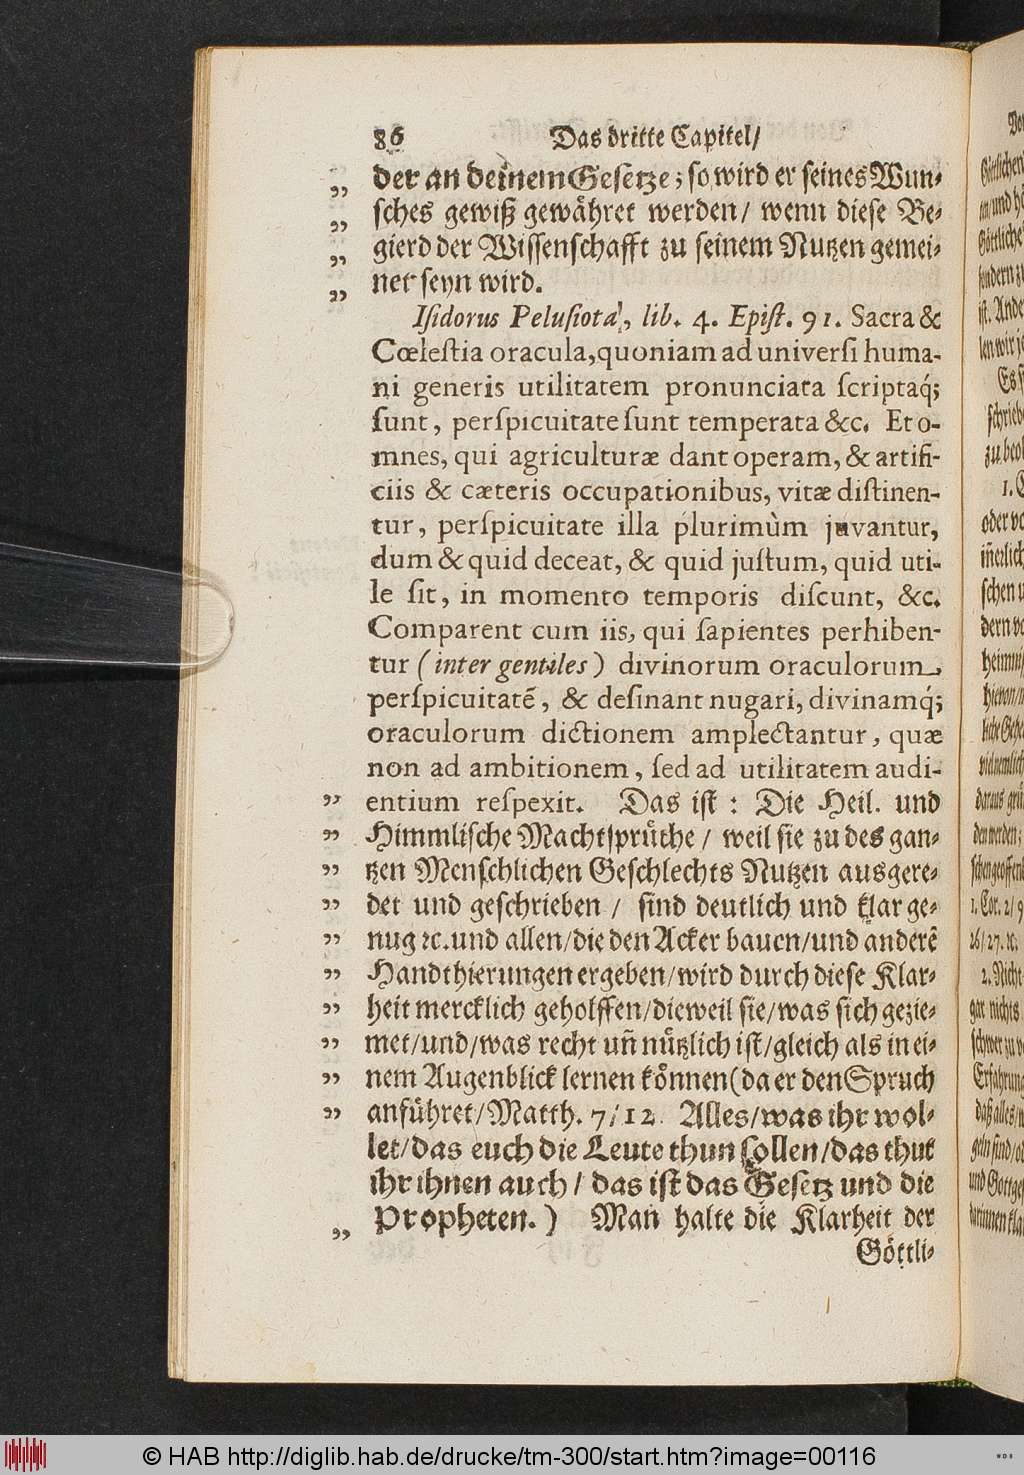 86 Das dritte Capitel/
„ der an deinem Gesetze; so wird er seines Wun-
„ sches gewiß gewähret werden/ wenn diese Be-
„ gierd der Wissenschafft zu seinem Nutzen gemei-
„ net seyn wird.
Iſidorus Peluſiota, lib. 4. Epiſt. 91. Sacra &
Cœleſtia oracula, quoniam ad univerſi huma-
ni generis utilitatem pronunciata ſcriptaq́;
ſunt, perſpicuitate ſunt temperata &c. Et o-
mnes, qui agriculturæ dant operam, & artifi-
ciis & cæteris occupationibus, vitæ diſtinen-
tur, perſpicuitate illa plurimùm juvantur,
dum & quid deceat, & quid juſtum, quid uti-
le ſit, in momento temporis diſcunt, &c.
Comparent cum iis, qui ſapientes perhiben-
tur (inter gentiles) divinorum oraculorum
perſpicuitatẽ, & deſinant nugari, divinamq́;
oraculorum dictionem amplectantur, quæ
non ad ambitionem, ſed ad utilitatem audi-
„ entium reſpexit. Das ist: Die Heil. und
„ Himmlische Machtsprüche / weil sie zu des gan-
„ tzen Menschlichen Geschlechts Nutzen ausgere-
„ det und geschrieben / sind deutlich und klar ge-
„ nug ꝛc. und allen/die den Acker bauen/und anderẽ
„ Handthierungen ergeben/wird durch diese Klar-
„ heit mercklich geholffen/dieweil sie/was sich gezie-
„ met/und/was recht uñ nützlich ist/gleich als in ei-
„ nem Augenblick lernen können (da er den Spruch
„ anführet/Matth. 7/12. Alles/was ihr wol-
let/das euch die Leute thun sollen/das thut
ihr ihnen auch / das ist das Gesetz und die
„ Propheten.) Man halte die Klarheit der
Göttli-
© HAB http://diglib.hab.de/drucke/tm-300/start.htm?image=00116